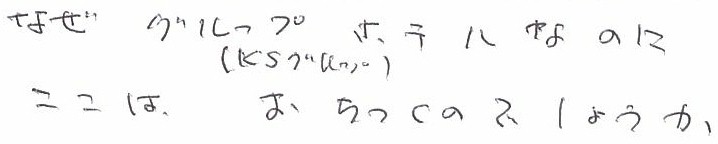 なぜ グループ ホテル なのに
(KSグループ)
ここは、 おちつくのでしょうか、